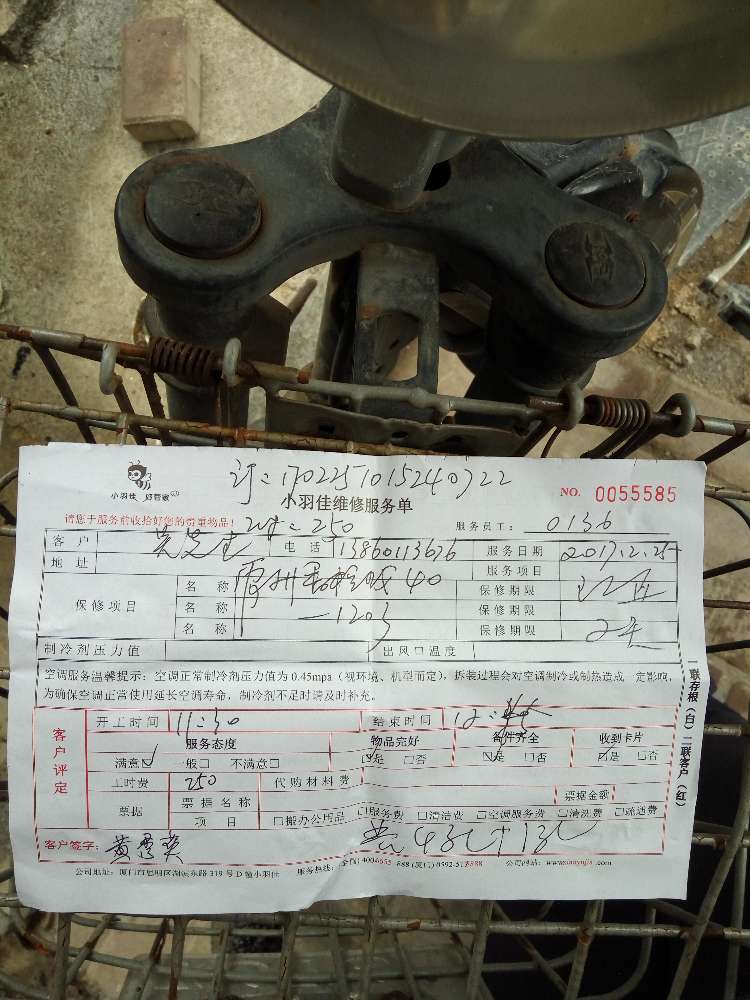 小羽佳 好管家
订:1702251015240722
小羽佳维修服务单
NO. 0055585
请您于服务前收拾好您的贵重物品!
250
服务员工: 0136
客户 电话 13860113676 服务日期 2017.2.25
地址 服务项目
保修项目 名称 40 保修期限
名称 1203 保修期限
名称 保修期限
制冷剂压力值 出风口温度
空调服务温馨提示:空调正常制冷剂压力值为0.45mpa(视环境、机型而定),拆装过程会对空调制冷或制热造成一定影响,
为确保空调正常使用延长空调寿命,制冷剂不足时请及时补充。
一联存根(白)二联客户(红)
客户评定
开工时间 11:30 结束时间 12:
服务态度 物品完好 备件齐全 收到卡片
满意☑ 一般□ 不满意□ ☑是 □否 ☑是 □否 ☑是 □否
工时费 250 代购材料费
票据 票据名称 票据金额
项目 □搬办公用品 □服务费 □清洁费 □空调服务费 □清洗费 □疏通费
客户签字:
公司地址:厦门市思明区湖滨东路319号D幢小羽佳 服务热线: 公司网站: